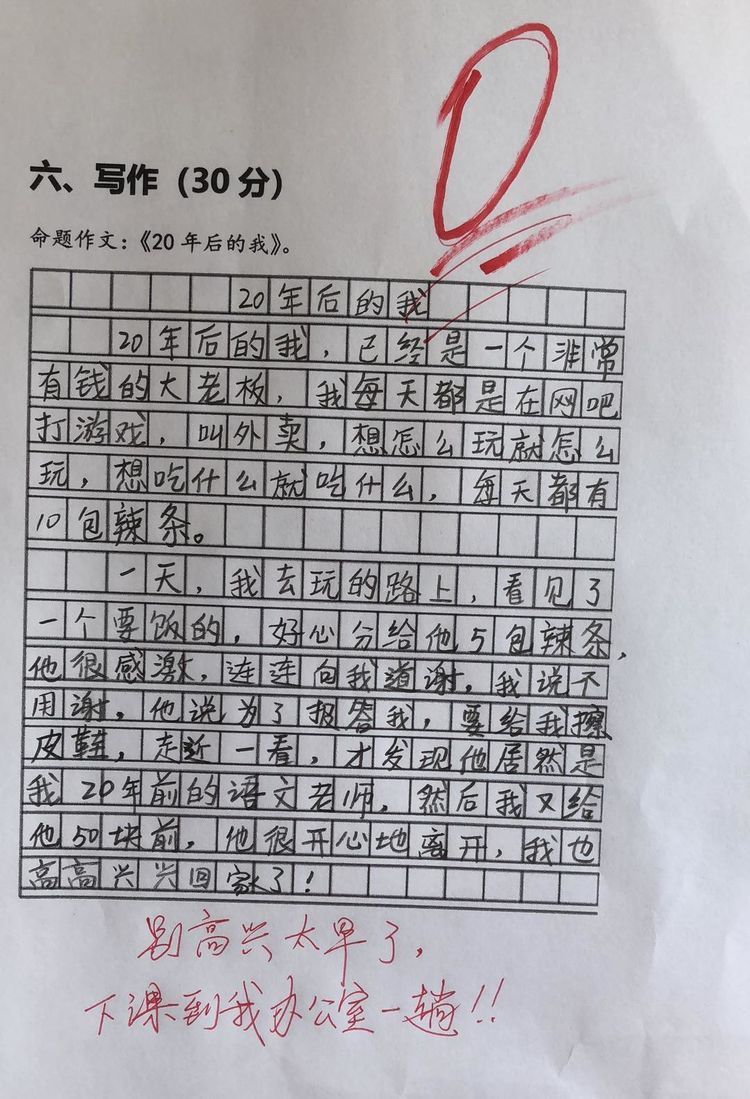 0
六、写作（30 分）
命题作文：《20 年后的我》。
20年后的我
20年后的我，已经是一个非常
有钱的大老板，我每天都是在网吧
打游戏，叫外卖，想怎么玩就怎么
玩，想吃什么就吃什么，每天都有
10包辣条。
一天，我去玩的路上，看见了
一个要饭的，好心分给他5包辣条，
他很感激，连连向我道谢，我说不
用谢，他说为了报答我，要给我擦
皮鞋，走近一看，才发现他居然是
我20年前的语文老师，然后我又给
他50块前，他很开心地离开，我也
高高兴兴回家了！
别高兴太早了，
下课到我办公室一趟!!